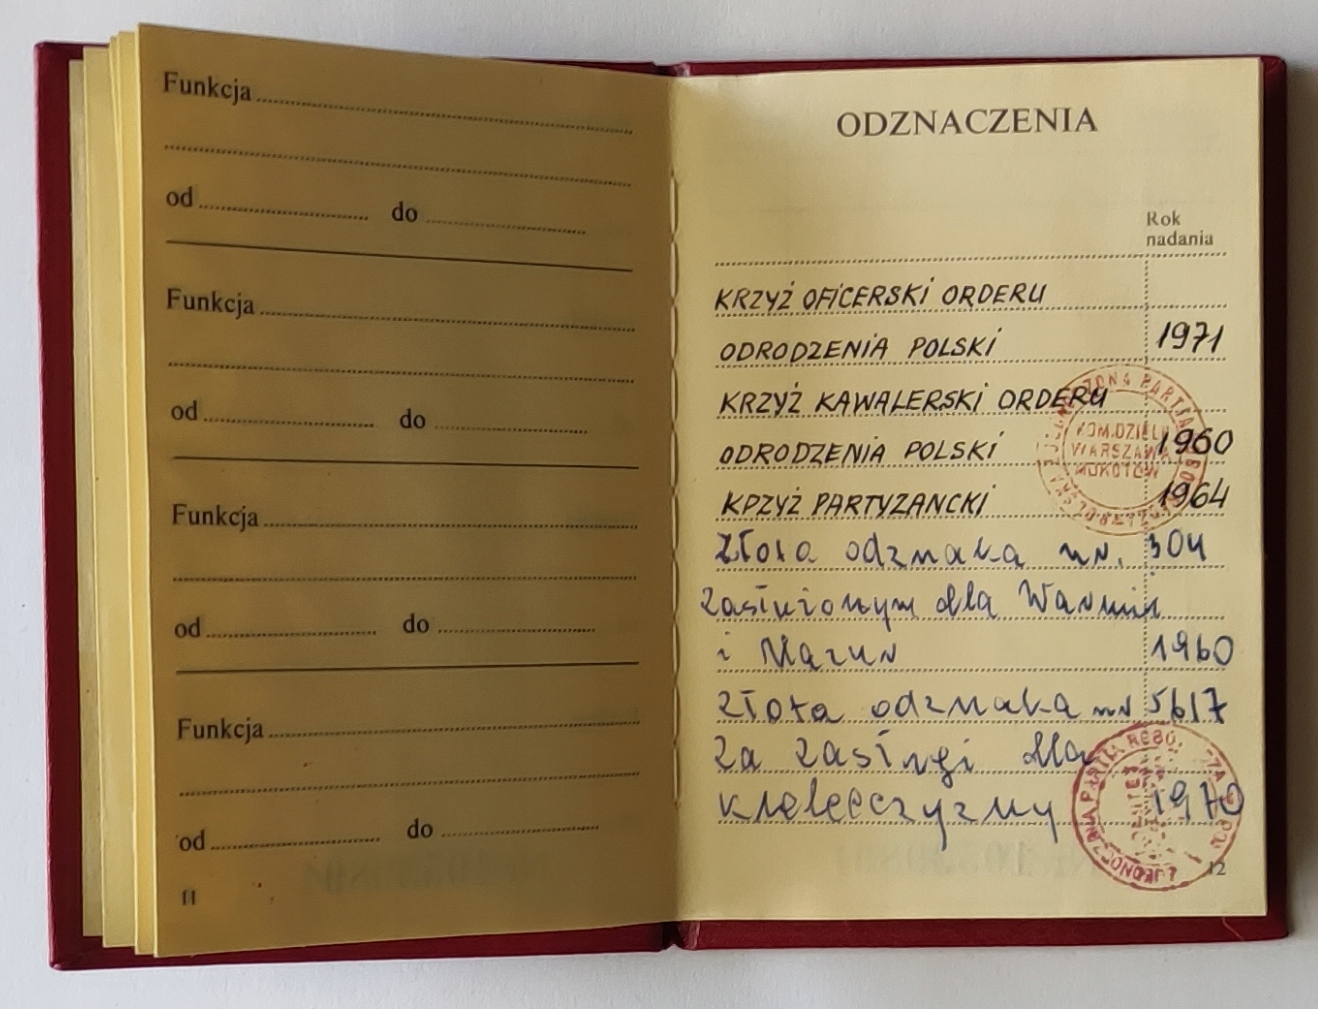 Funkcja
od do
Funkcja
od do
Funkcja
od do
Funkcja
od do
11
ODZNACZENIA
Rok
nadania
KRZYŻ OFICERSKI ORDERU
ODRODZENIA POLSKI 1971
KRZYŻ KAWALERSKI ORDERU
ODRODZENIA POLSKI 1960
KPZYŻ PARTYZANCKI 1964
Złota odznaka nr. 304
Zasłużonym dla Warmii
i Mazur 1960
Złota odznaka nr 5617
Za zasługi dla
Kielecczyzny 1970
12
KOM.DZIELN
WARSZAWA
MOKOTÓW